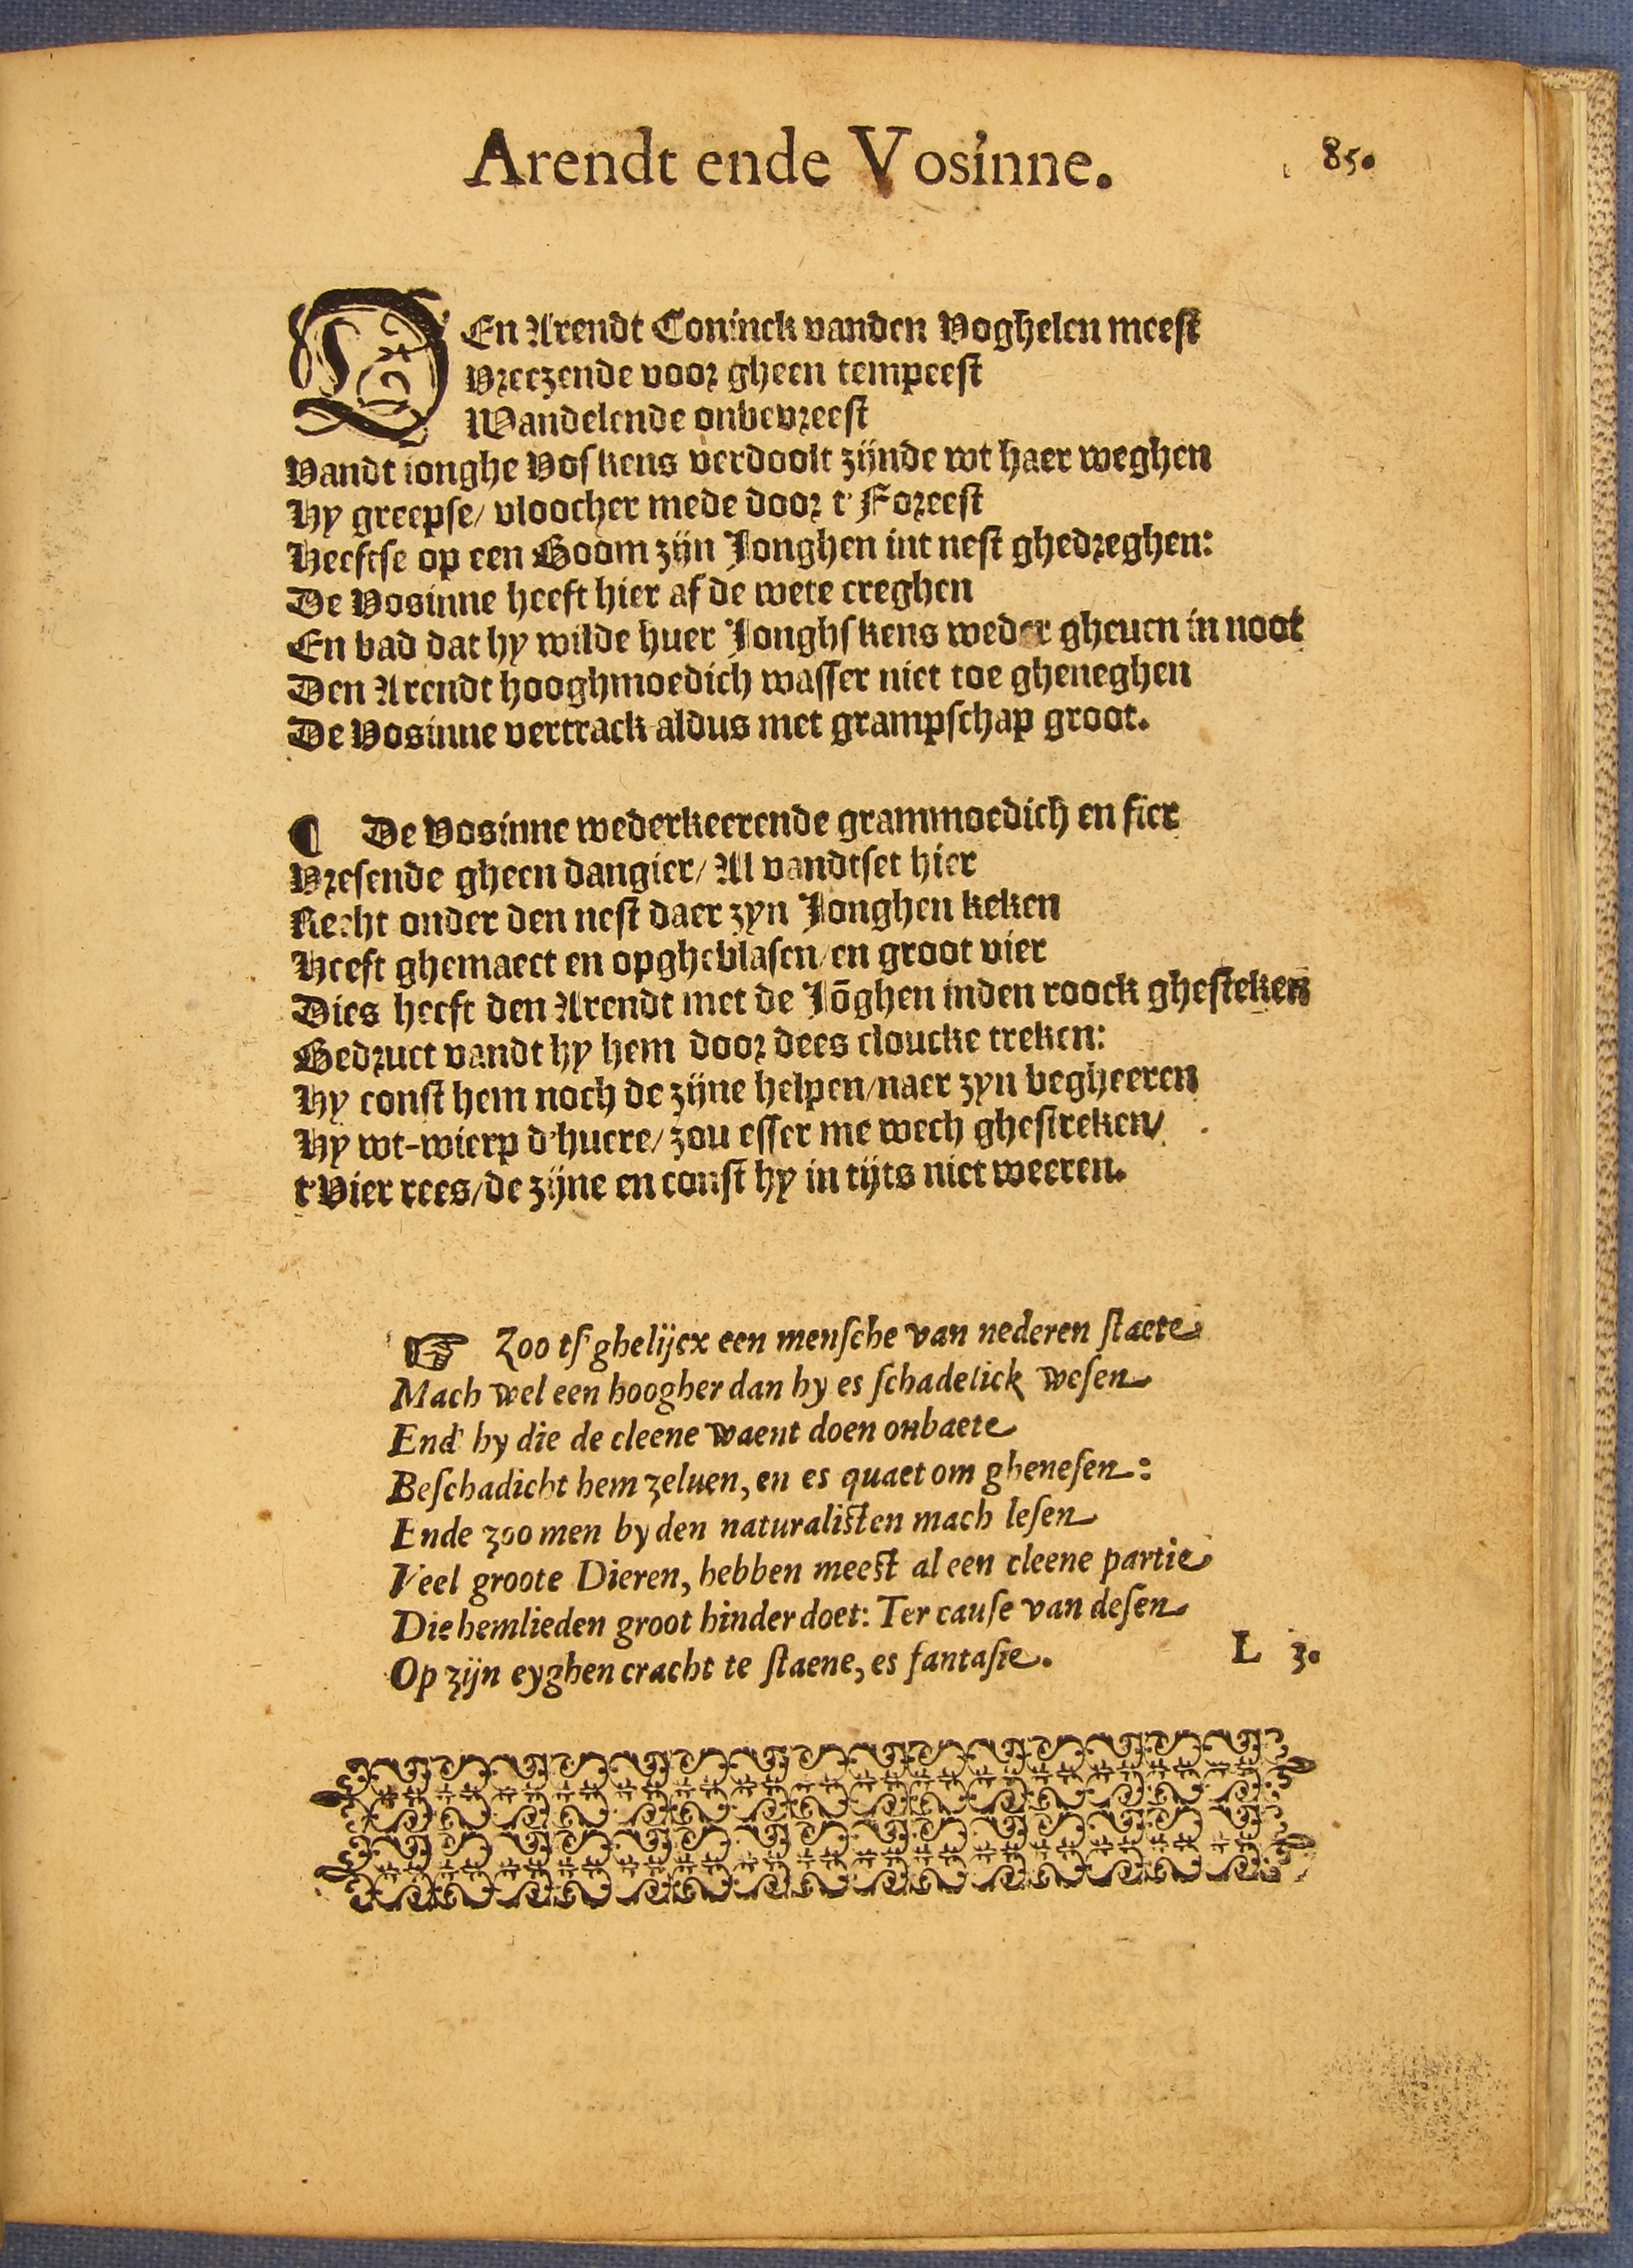 Arendt ende Vosinne.
85.
DEn Arendt Coninck vanden Voghelen meest
Vreezende voor gheen tempeest
Wandelende onbevreest
Vandt ionghe Voskens verdoolt zijnde wt haer weghen
Hy greepse/ vloocher mede door t'Foreest
Heeftse op een Boom zijn Jonghen int nest ghedreghen:
De Vosinne heeft hier af de wete creghen
En bad dat hy wilde huer Jonghskens weder gheuen in noot
Den Arendt hooghmoedich wasser niet toe gheneghen
De Vosinne vertrack aldus met grampschap groot.
¶ De Vosinne wederkeerende grammoedich en fier
Vresende gheen dangier/ Al vandtset hier
Recht onder den nest daer zyn Jonghen keken
Heeft ghemaect en opgheblasen/en groot vier
Dies heeft den Arendt met de Jōghen inden roock ghesteken
Gedruct vandt hy hem door dees cloucke treken:
Hy const hem noch de zijne helpen/naer zyn begheeren
Hy wt-wierp d'huere/ zou esser me wech ghestreken/
t'Vier rees/de zijne en const hy in tijts niet weeren.
☞ Zoo tsghelijcx een mensche van nederen staete
Mach wel een hoogher dan hy es schadelick wesen
End' hy die de cleene waent doen onbaete
Beschadicht hem zeluen, en es quaet om ghenesen:
Ende zoo men by den naturalisten mach lesen
Veel groote Dieren, hebben meest al een cleene partie
Die hemlieden groot hinder doet: Ter cause van desen
Op zijn eyghen cracht te staene, es fantasie.
L 3.